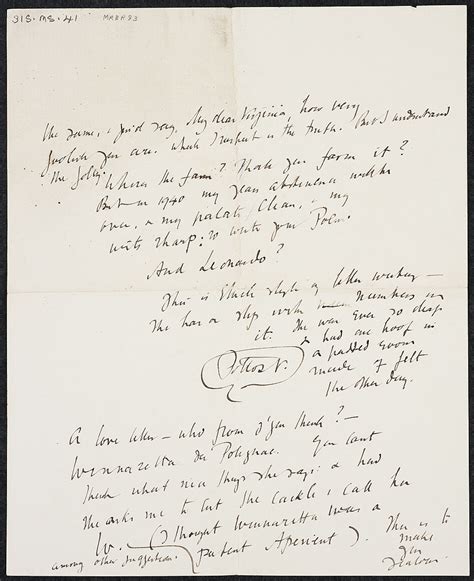 31S. MS. 41
MMRH 83
the same, I should say, My dear Virginia, how very
foolish you are. Which I suspect is the truth. But I understand
the folly.
Where's the farm? Shall you farm it?
But in 1940 my years abstinence will be
over, & my palate clean, & my
wits sharp: to write your Poem.
And Leonardo?
This is style of letter writing —
She has a slip with numbers in
it. She was ever so
& had one hoof in
a padded room
made of felt
the other day.
Potto's V.
A love letter — who from d'you think? —
Winnaretta de Polignac. You can't
think what nice things she says: & how
she asks me to cut the cackle & call her
W. (I thought Winnaretta was a
patent Aperient). This is to
among other suggestions.
make
you
jealous.